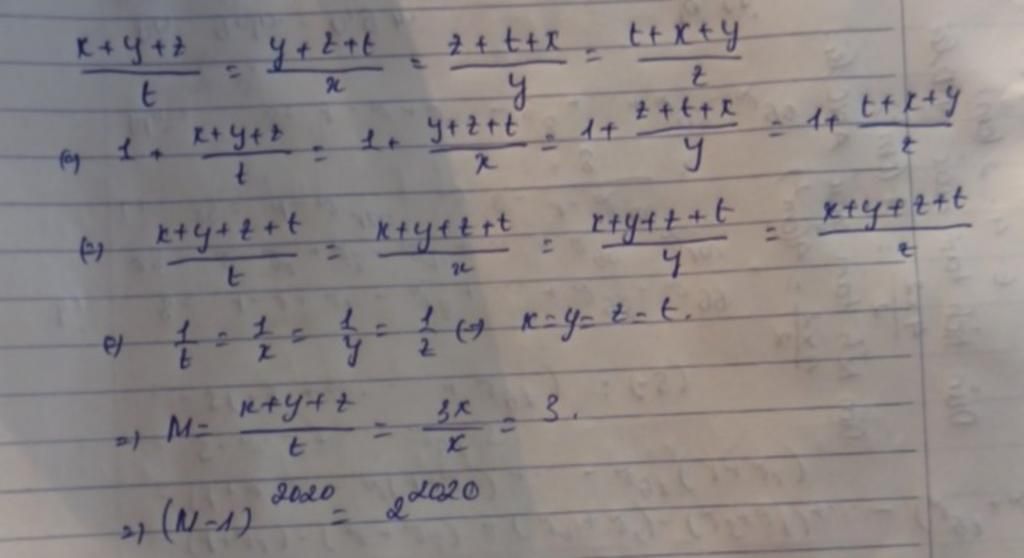 (x+y+z)/t = (y+z+t)/x = (z+t+x)/y = (t+x+y)/z
(=) 1 + (x+y+z)/t = 1 + (y+z+t)/x = 1 + (z+t+x)/y = 1 + (t+x+y)/z
(=) (x+y+z+t)/t = (x+y+z+t)/x = (x+y+z+t)/y = (x+y+z+t)/z
(=) 1/t = 1/x = 1/y = 1/z (=) x=y=z=t.
=) M = (x+y+z)/t = 3x/x = 3.
=) (M-1)^2020 = 2^2020